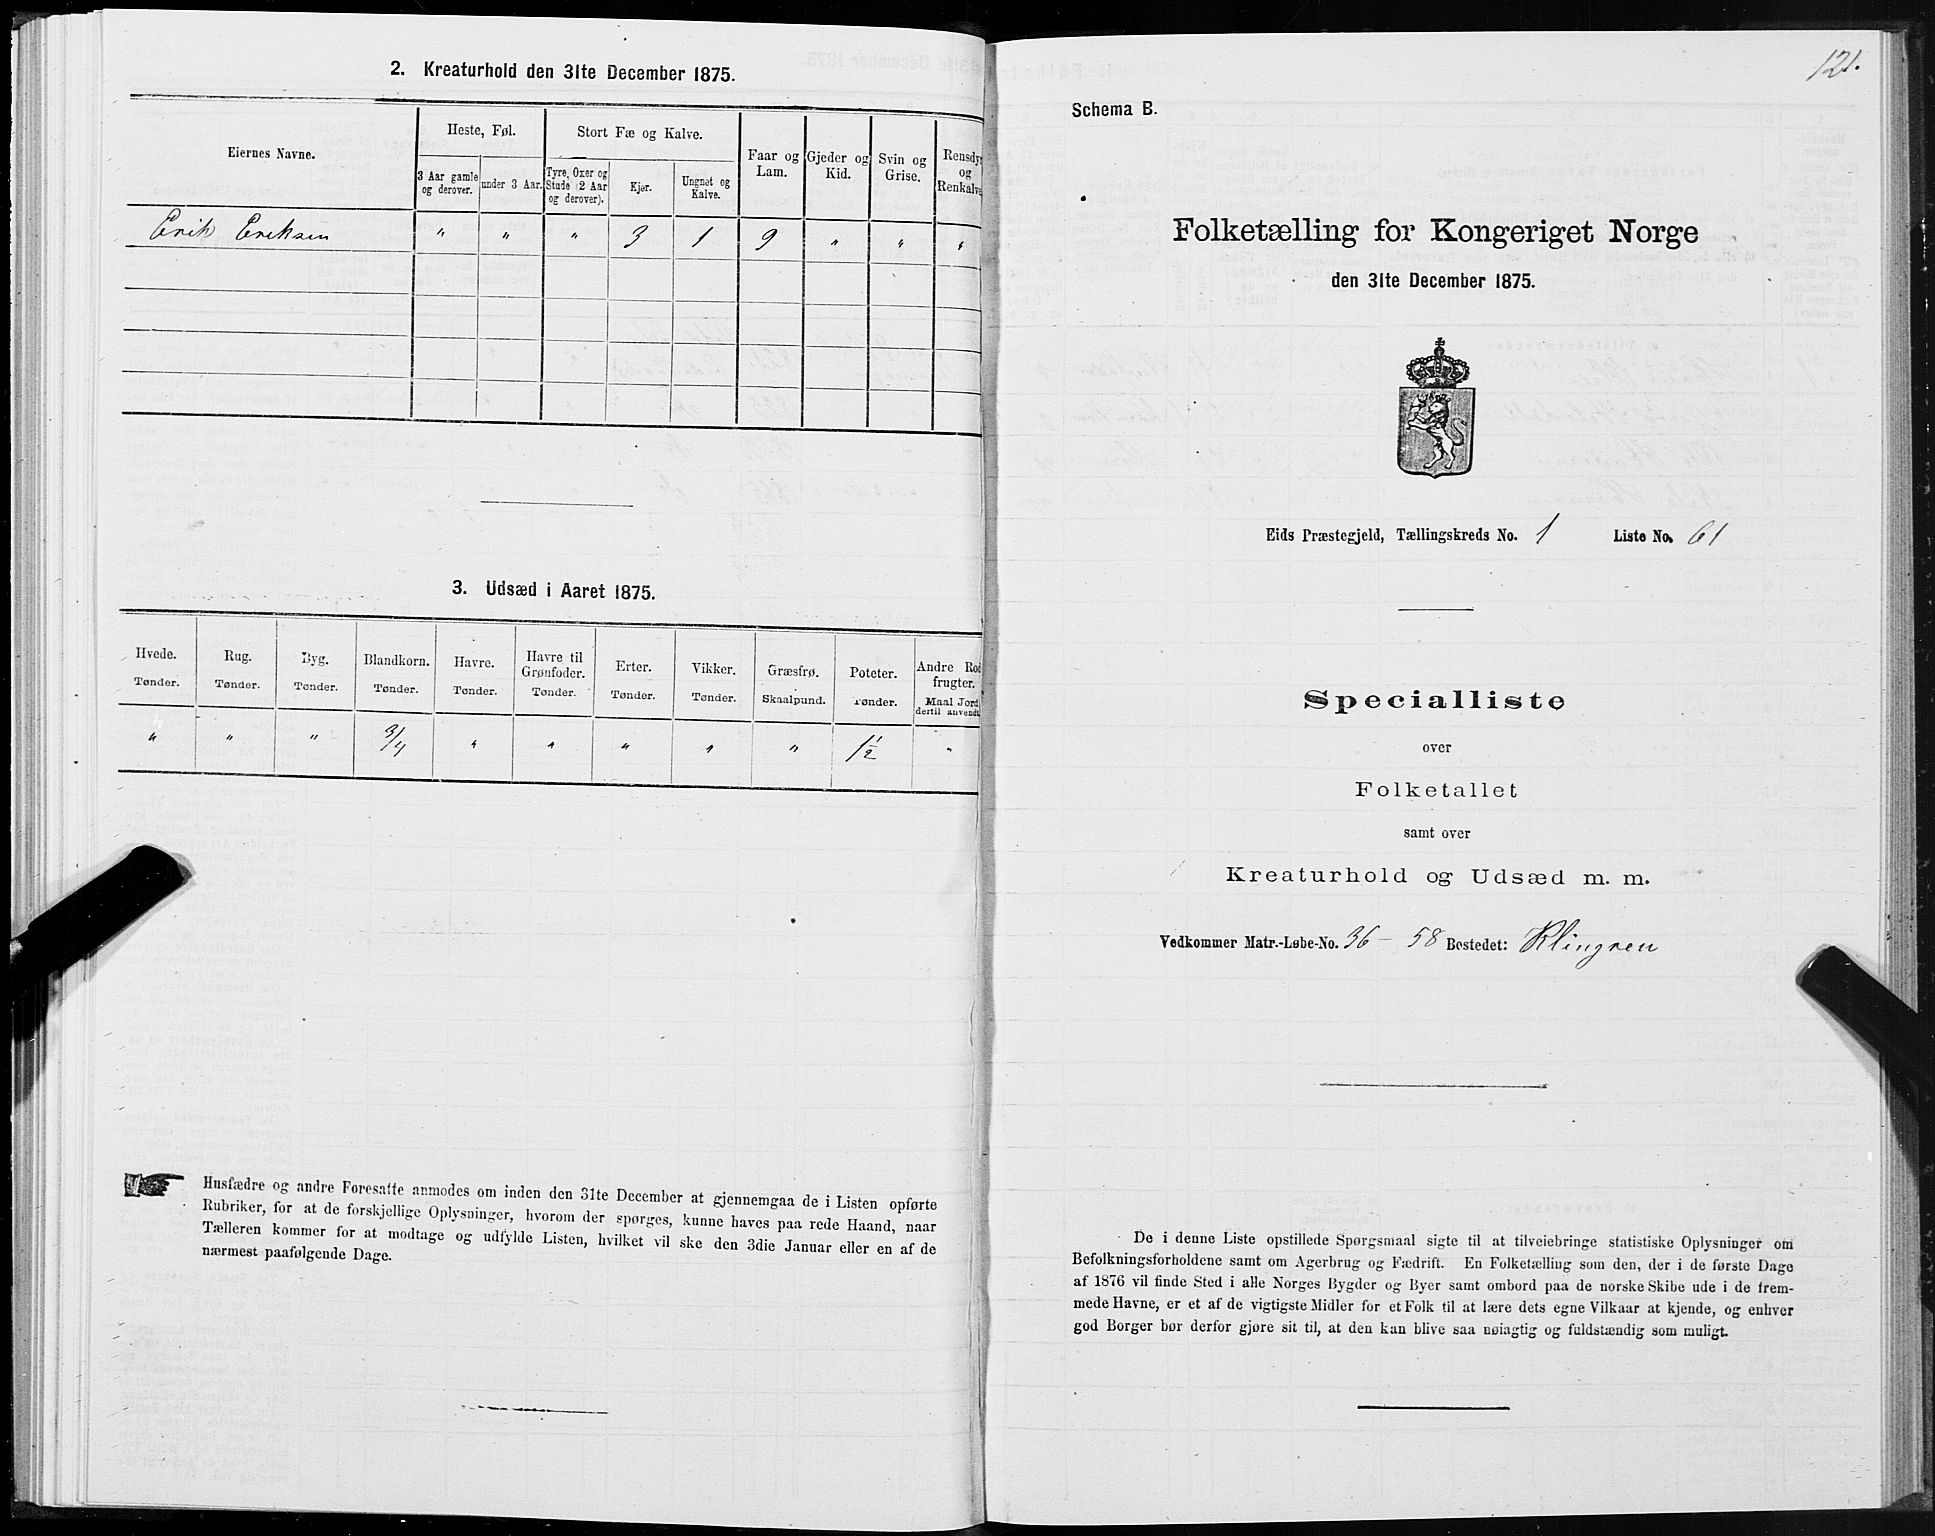 2. Kreaturhold den 31te December 1875.
Eiernes Navne.
Heste, Føl.
Stort Fæ og Kalve.
Faar og
Lam.
Gjeder og
Kid.
Svin og
Grise.
Rensdyr
og
Renkalve
3 Aar gamle
og derover.
under 3 Aar.
Tyre, Oxer og
Stude (2 Aar
og derover).
Kjør.
Ungnøt og
Kalve.
Erik Eriksen " " " 3 1 9 " " "
3. Udsæd i Aaret 1875.
Hvede.
Tønder.
Rug.
Tønder.
Byg.
Tønder.
Blandkorn.
Tønder.
Havre.
Tønder.
Havre til
Grønfoder.
Tønder.
Erter.
Tønder.
Vikker.
Tønder.
Græsfrø.
Skaalpund.
Poteter.
Tønder.
Andre Rod
frugter.
Maal Jord
dertil anvendt
" " " 3/4 " " " " " 1 1/2 "
Husfædre og andre Foresatte anmodes om inden den 31te December at gjennemgaa de i Listen opførte
Rubriker, for at de forskjellige Oplysninger, hvorom der spørges, kunne haves paa rede Haand, naar
Tælleren kommer for at modtage og udfylde Listen, hvilket vil ske den 3die Januar eller en af de
nærmest paafølgende Dage.
121.
Schema B.
Folketælling for Kongeriget Norge
den 31te December 1875.
Eids Præstegjeld, Tællingskreds No. 1 Liste No. 61
Specialliste
over
Folketallet
samt over
Kreaturhold og Udsæd m. m.
Vedkommer Matr.-Løbe-No. 36 - 58 Bostedet: Klingren
De i denne Liste opstillede Spørgsmaal sigte til at tilveiebringe statistiske Oplysninger om
Befolkningsforholdene samt om Agerbrug og Fædrift. En Folketælling som den, der i de første Dage
af 1876 vil finde Sted i alle Norges Bygder og Byer samt ombord paa de norske Skibe ude i de frem-
mede Havne, er et af de vigtigste Midler for et Folk til at lære dets egne Vilkaar at kjende, og enhver
god Borger bør derfor gjøre sit til, at den kan blive saa nøiagtig og fuldstændig som muligt.